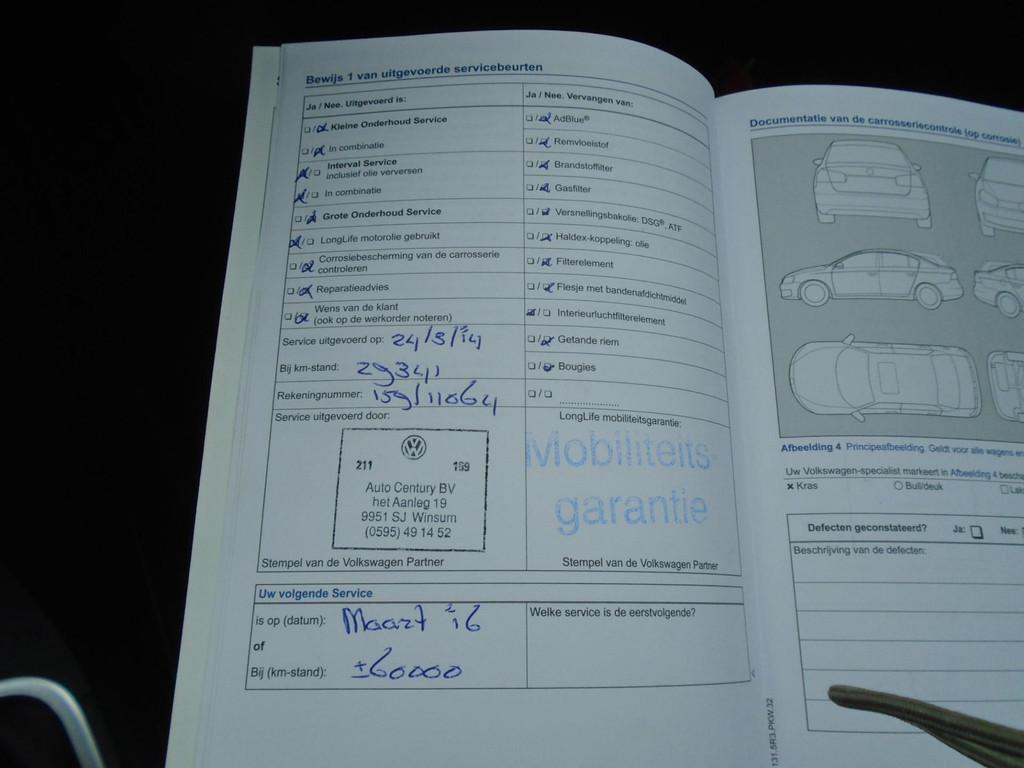 Bewijs 1 van uitgevoerde servicebeurten
Ja / Nee. Uitgevoerd is:
Kleine Onderhoud Service
In combinatie
Interval Service
inclusief olie verversen
In combinatie
Grote Onderhoud Service
LongLife motorolie gebruikt
Corrosiebescherming van de carrosserie
controleren
Reparatieadvies
Wens van de klant
(ook op de werkorder noteren)
Service uitgevoerd op: 24/3/'14
Bij km-stand: 29341
Rekeningnummer: 159/11064
Service uitgevoerd door:
211 169
Auto Century BV
het Aanleg 19
9951 SJ Winsum
(0595) 49 14 52
Stempel van de Volkswagen Partner
Ja / Nee. Vervangen van:
AdBlue®
Remvloeistof
Brandstoffilter
Gasfilter
Versnellingsbakolie: DSG®, ATF
Haldex-koppeling: olie
Filterelement
Flesje met bandenafdichtmiddel
Interieurluchtfilterelement
Getande riem
Bougies
LongLife mobiliteitsgarantie:
Mobiliteits-
garantie
Stempel van de Volkswagen Partner
Uw volgende Service
is op (datum): Maart '16
of
Bij (km-stand): ±60000
Welke service is de eerstvolgende?
131.5R3.PKW.32
Documentatie van de carrosseriecontrole (op corrosie)
Afbeelding 4 Principeafbeelding. Geldt voor alle wagens en
Uw Volkswagen-specialist markeert in Afbeelding 4
Kras Buil/deuk
Defecten geconstateerd? Ja: Nee:
Beschrijving van de defecten: